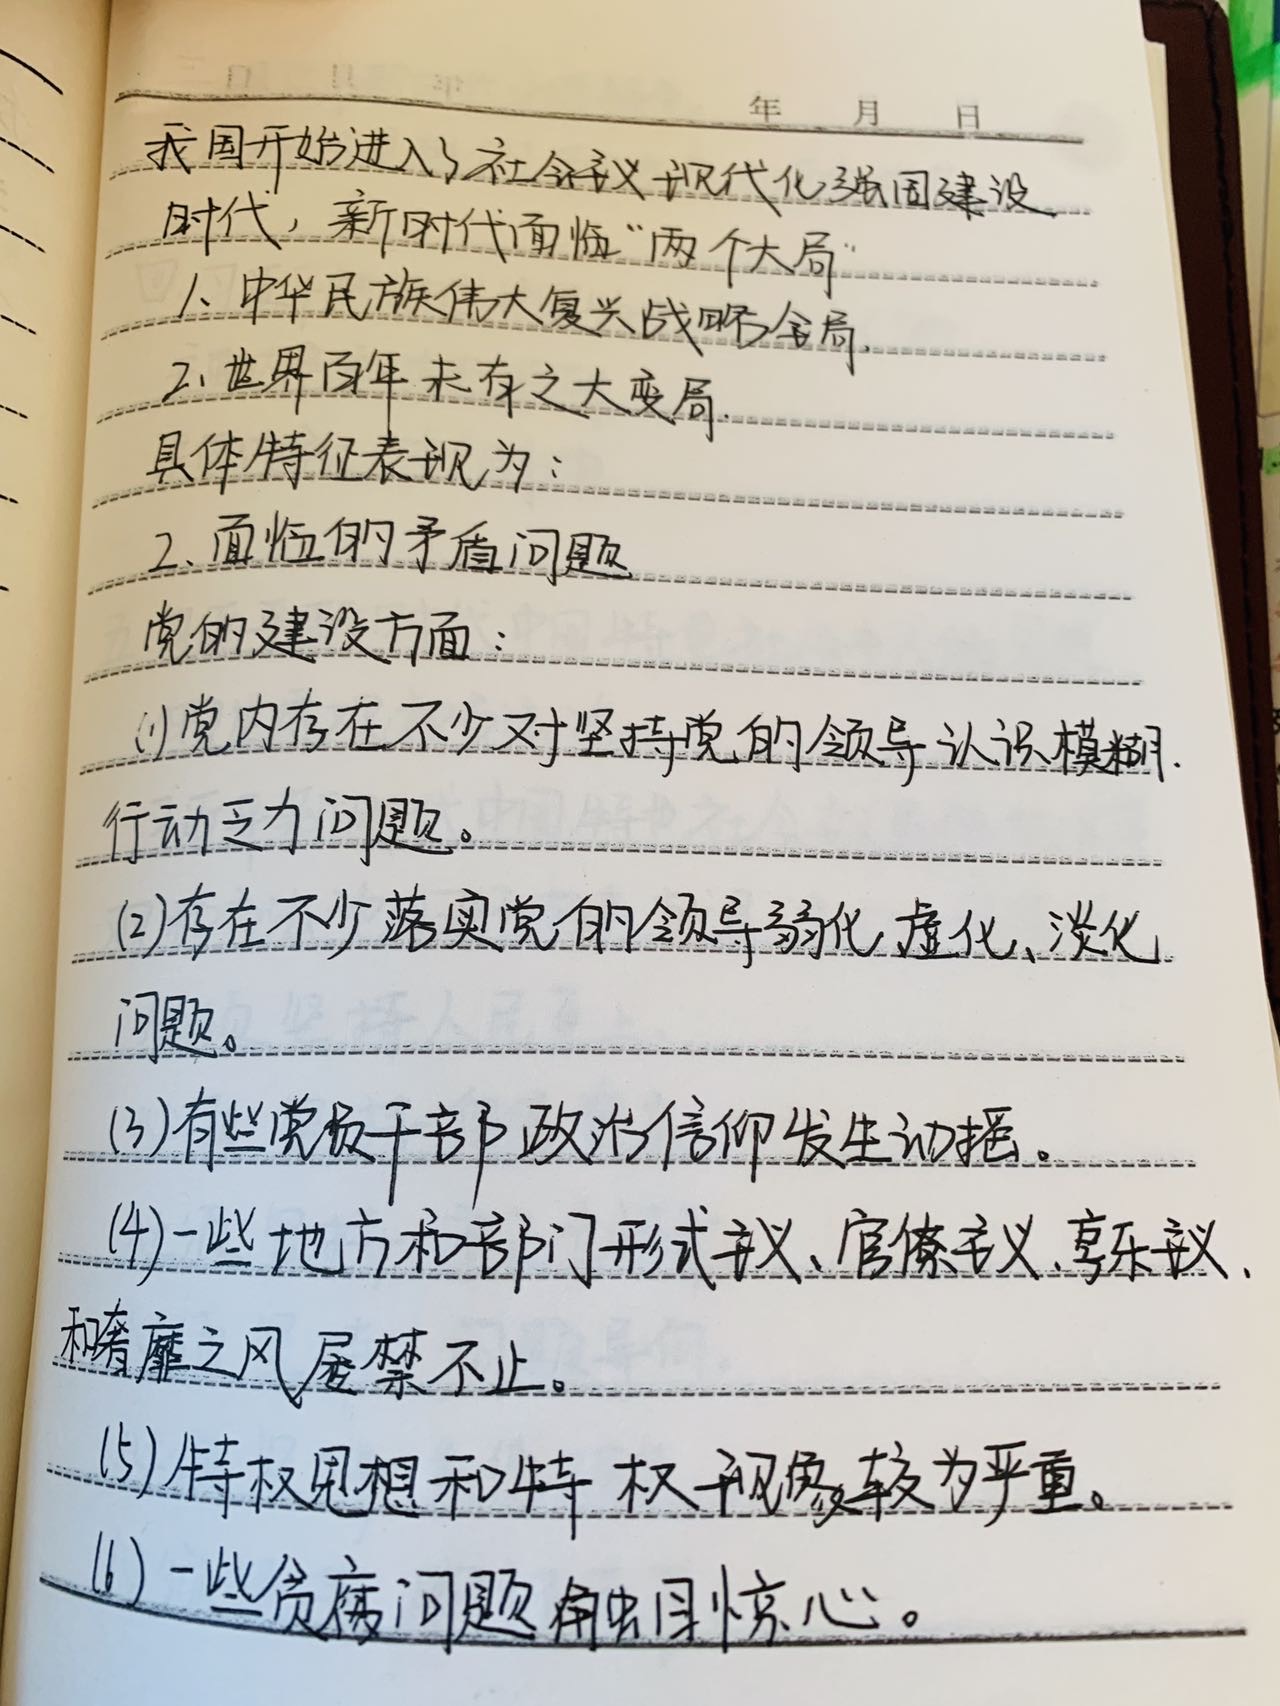 年 月 日
我国开始进入了社会主义现代化强国建设
时代，新时代面临“两个大局”
1、中华民族伟大复兴战略全局.
2、世界百年未有之大变局.
具体特征表现为：
2、面临的矛盾问题
党的建设方面：
(1)党内存在不少对坚持党的领导认识模糊.
行动乏力问题。
(2)存在不少落实党的领导弱化,虚化、淡化
问题。
(3)有些党员干部政治信仰发生动摇。
(4)一些地方和部门形式主义、官僚主义、享乐主义、
和奢靡之风屡禁不止。
(5)特权思想和特权现象较为严重。
(6)一些贪腐问题触目惊心。